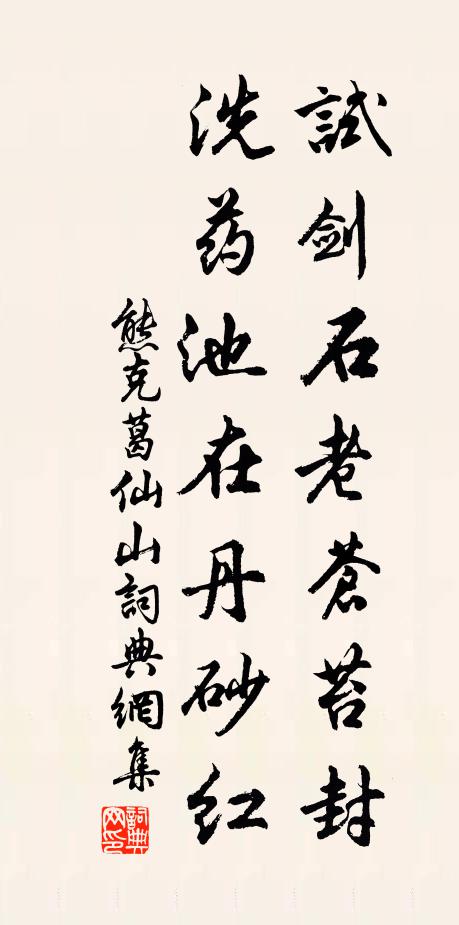 試剑石老蒼苔封
洗药池在丹砂红
熊克葛仙山詞典網集
詞典网印